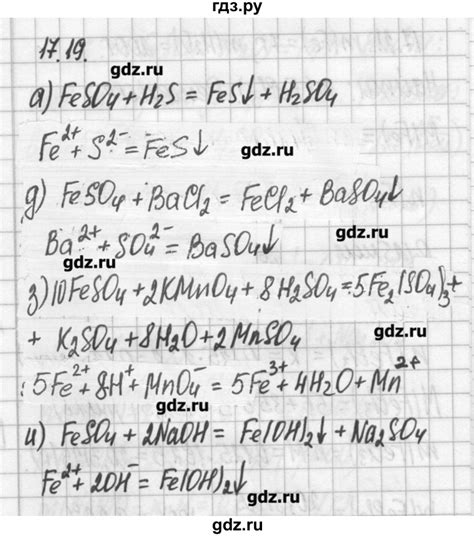 гдз.ру
17.19.
gdz.ru
а) FeSO4 + H2S = FeS↓ + H2SO4
gdz.ru
Fe²⁺ + S²⁻ = FeS↓
gdz.ru
д) FeSO4 + BaCl2 = FeCl2 + BaSO4↓
gdz.ru
Ba²⁺ + SO4²⁻ = BaSO4↓
gdz.ru
з) 10FeSO4 + 2KMnO4 + 8H2SO4 = 5Fe2(SO4)3 +
gdz.ru
+ K2SO4 + 8H2O + 2MnSO4
gdz.ru
5Fe²⁺ + 8H⁺ + MnO4⁻ = 5Fe³⁺ + 4H2O + Mn²⁺
gdz.ru
и) FeSO4 + 2NaOH = Fe(OH)2↓ + Na2SO4
gdz.ru
Fe²⁺ + 2OH⁻ = Fe(OH)2↓
gdz.ru